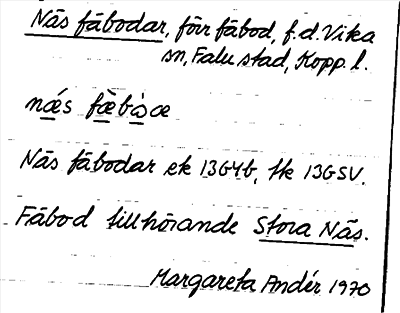 Näs fäbodar, förr fäbod, f.d. Vika
sn, Falu stad, Kopp. l.
næ̀s fæ̀bὰɷ
Näs fäbodar ek 13G4b, tk 13GSV.
Fäbod tillhörande Stora Näs.
Margareta Andér 1970